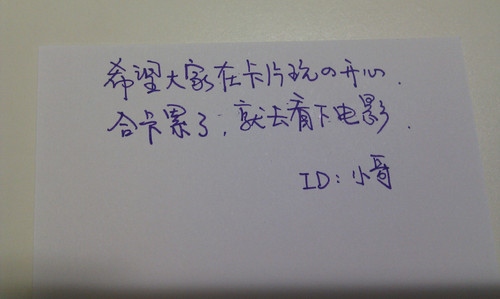 希望大家在卡片玩の开心.
合卡累了,就去看下电影.
ID:小哥